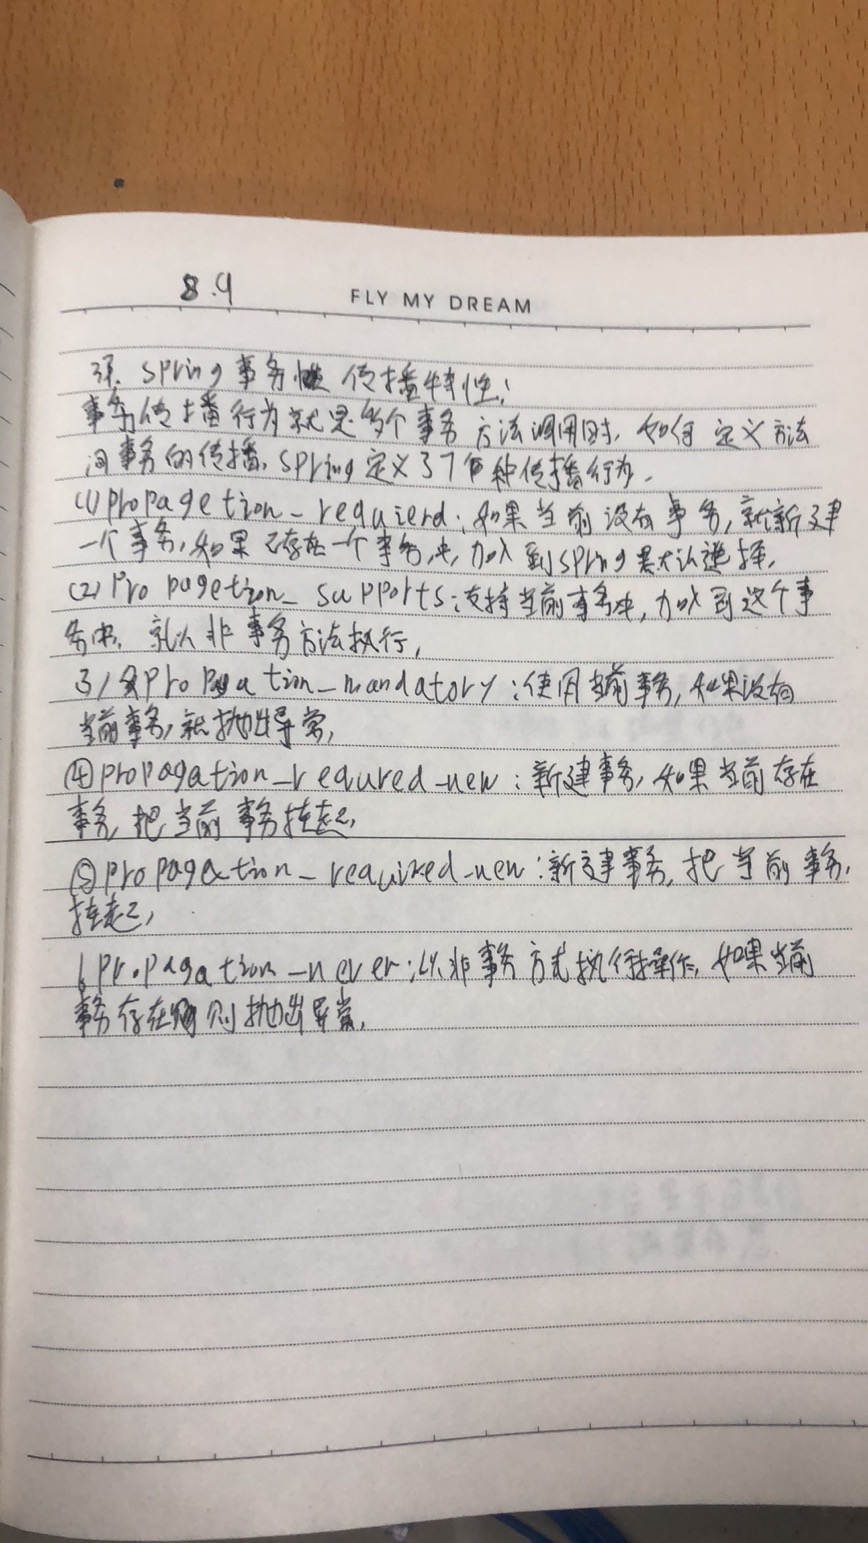 8.9
FLY MY DREAM
spring事务 传播特性:
事务传播行为就是多个事务方法调用时,如何定义方法
间事务的传播,spring定义了7种传播行为.
(1) propagetion_requierd:如果当前没有事务,就新建
一个事务,如果已存在一个事务中,加入到spring默认选择,
(2) propagetion_supports:支持当前事务,加入到这个事
务中,就以非事务方法执行,
3) propagation_mandatory:使用当前事务,如果没有
当前事务,就抛出异常,
④ propagation_requred_new:新建事务,如果当前存在
事务,把当前事务挂起,
⑤ propagation_required_new:新建事务,把当前事务,
挂起,
6 propagation_never:以非事务方式执行操作,如果当前
事务存在 则抛出异常,